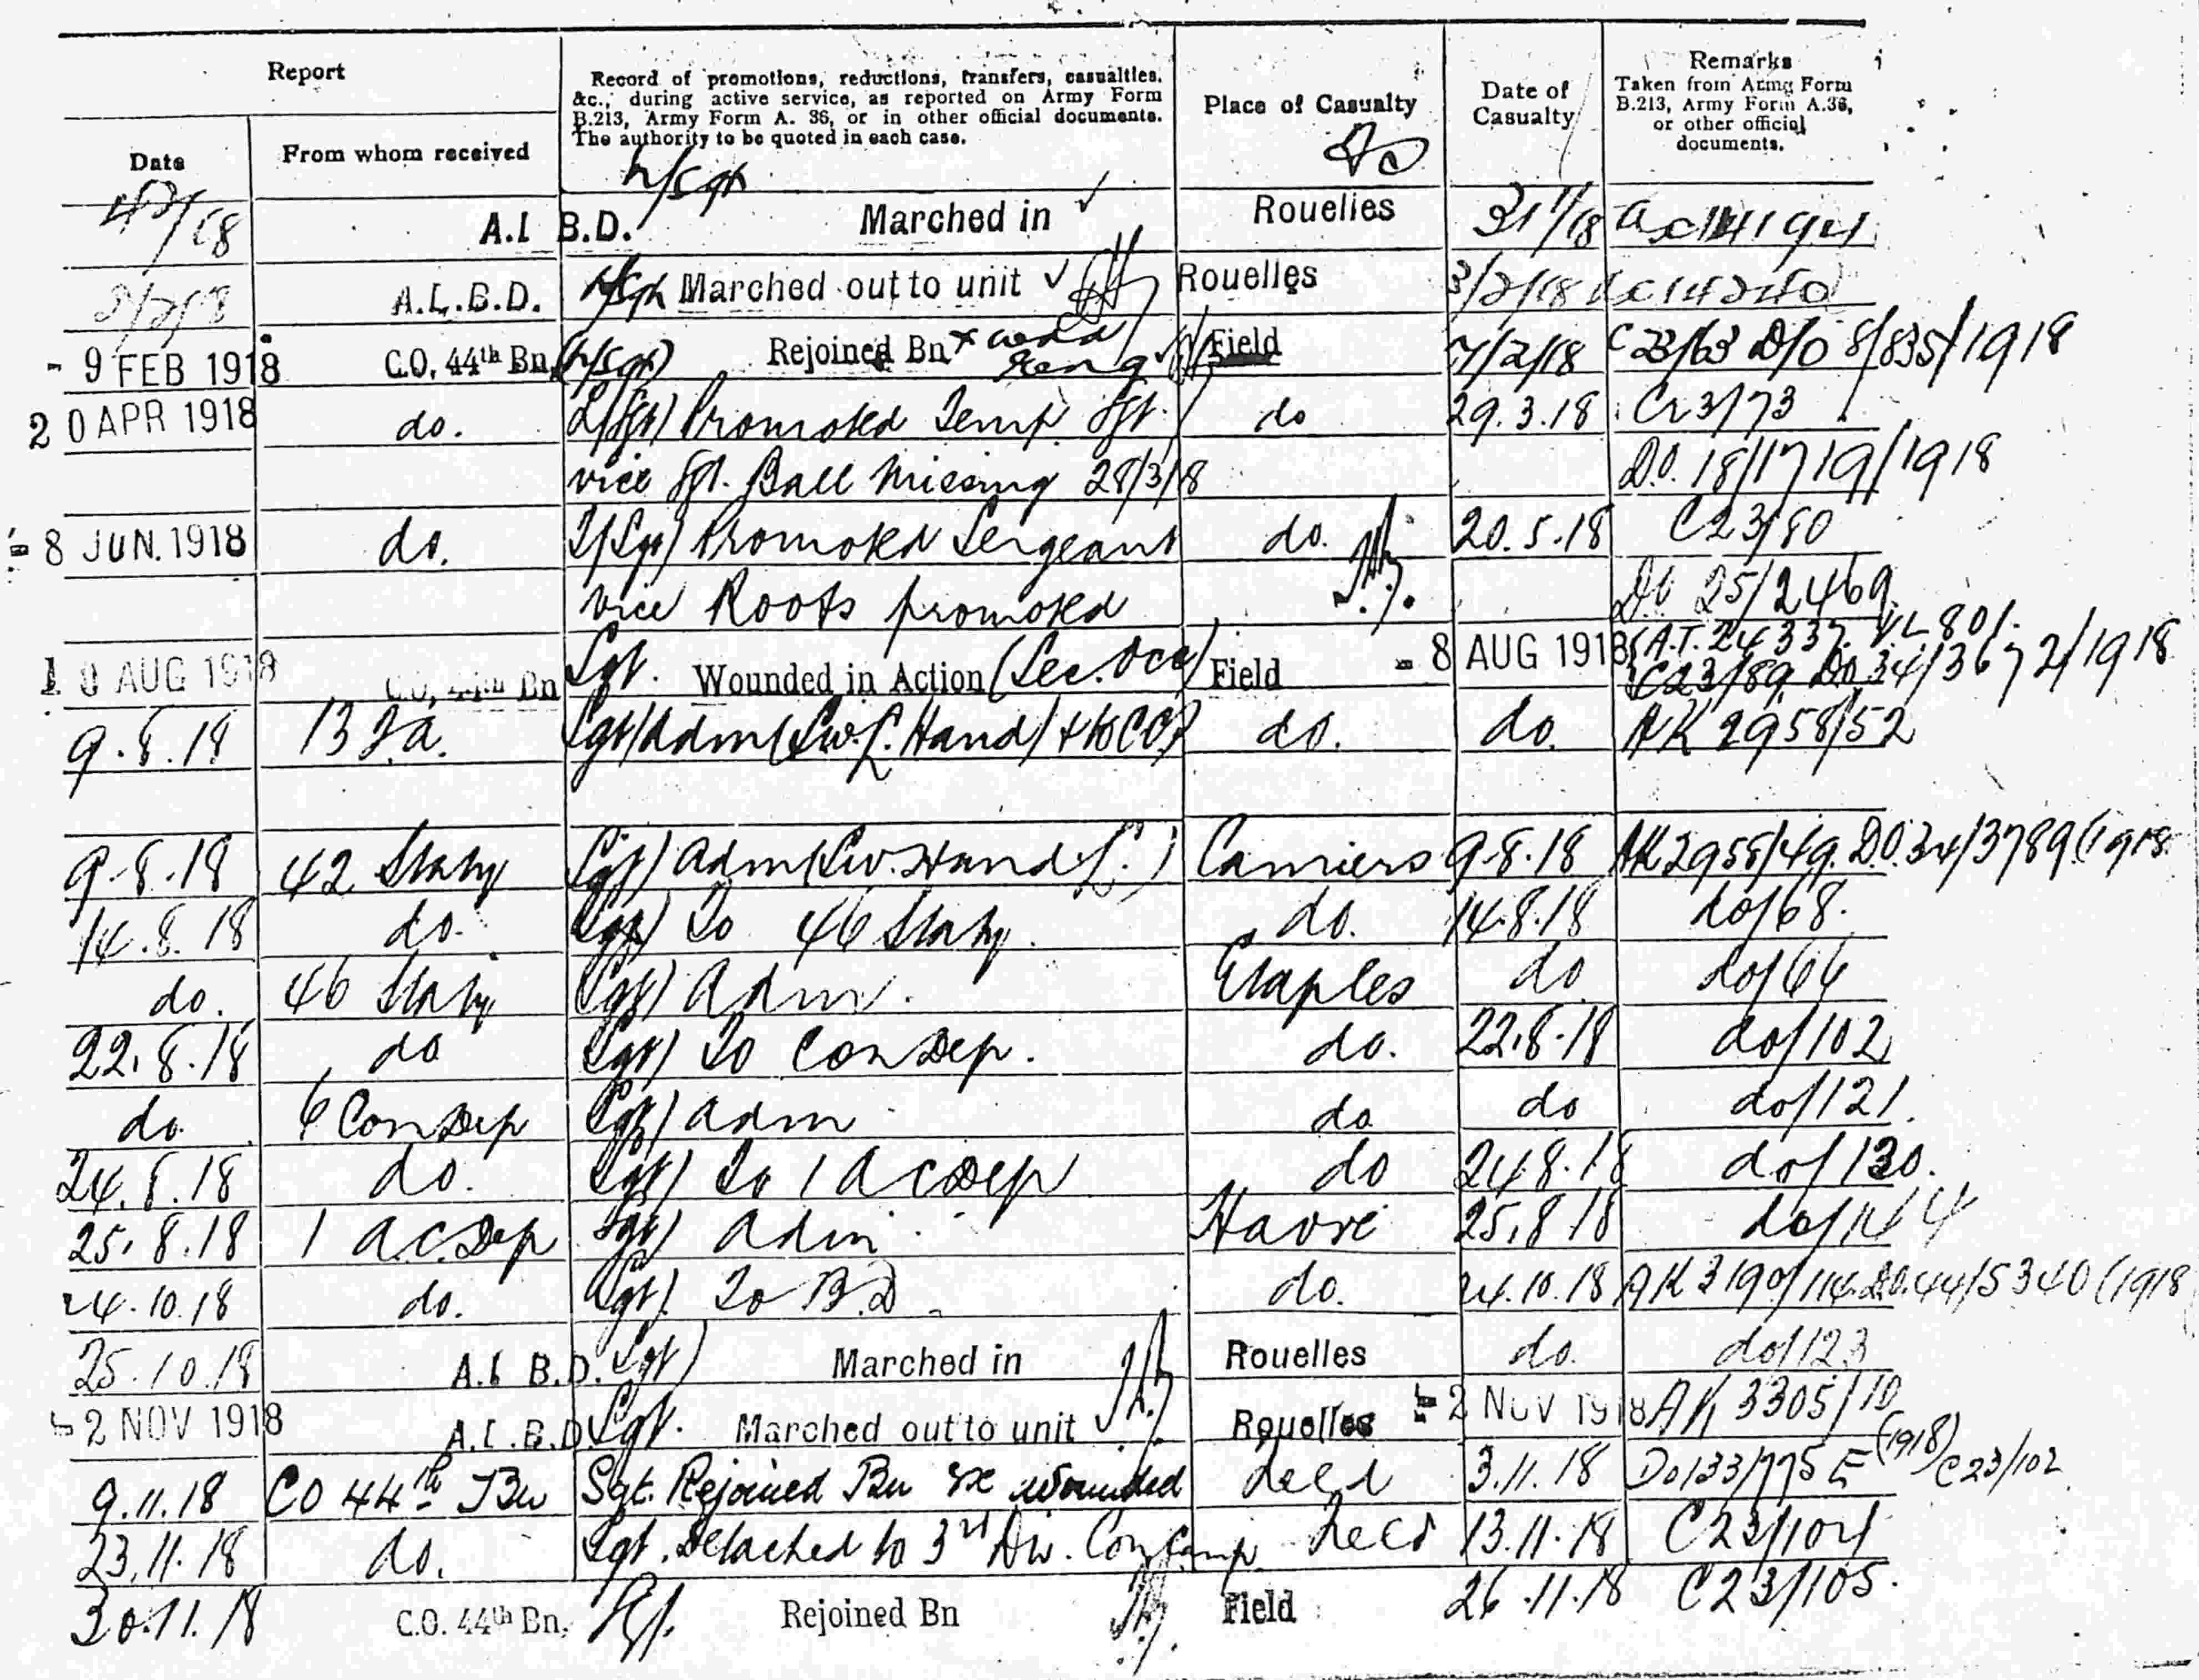 Report
Record of promotions, reductions, transfers, casualties,
&c., during active service, as reported on Army Form
B.213, Army Form A. 36, or in other official documents.
The authority to be quoted in each case.
Place of Casualty
Date of
Casualty
Remarks
Taken from Army Form
B.213, Army Form A.36,
or other official
documents.
Date
From whom received
A.I B.D. Marched in Rouelles 31/1/18
A.I.B.D. Marched out to unit Rouelles 3/2/18
- 9 FEB 1918 C.O. 44th Bn. Rejoined Bn Field 7/2/18 C23/63 D/O 8/835/1918
20 APR 1918 do. L/Sgt) Promoted Temp. Sgt. do 29.3.18 C23/73
vice Sgt. Ball Missing 28/3/18 D.O. 18/1719/1918
- 8 JUN. 1918 do. T/Sgt) Promoted Sergeant do. 20.5.18 C23/80
vice Roots promoted DO 25/2469
10 AUG 1918 C.O. 44th Bn Sgt. Wounded in Action (Sec. Occ) Field - 8 AUG 1918 A.T. 24337
C23/89 DO 34/3672/1918
9.8.18 13 F.A. Sgt) Adm (S.W. L. Hand) & to CCS do. do. AK 2958/52
9.8.18 42 Staty Sgt) Adm (S.W. Hand L.) Camiers 9.8.18 AK 2958/49. D.O. 34/3789/1918
14.8.18 do. Sgt) To 46 Staty. do. 14.8.18 do/68.
do. 46 Staty Sgt) Adm. Etaples do do/66
22.8.18 do Sgt) To Con Dep. do. 22.8.18 do/102
do. 6 Con Dep Sgt) Adm do do do/121.
24.8.18 do. Sgt) To 1 A C Dep do 24.8.18 do/130.
25.8.18 1 A.C. Dep Sgt) Adm Havre 25.8.18 do/144
24.10.18 do. Sgt) To B.D. do. 24.10.18 AK 3190/114 D.O. 44/5340/1918
25.10.18 A.I B.D. Sgt) Marched in Rouelles do. do/123
- 2 NOV 1918 A.I.B.D Sgt. Marched out to unit Rouelles - 2 NOV 1918 AK 3305/10
9.11.18 CO 44th Bn Sgt. Rejoined Bn ex Wounded Field 3.11.18 Do133/775 E (1918) C23/102
23.11.18 do. Sgt. Detached to 3rd Div. Con Camp. Field 13.11.18 C23/104
30.11.18 C.O. 44th Bn. Sgt. Rejoined Bn Field 26.11.18 C23/105.